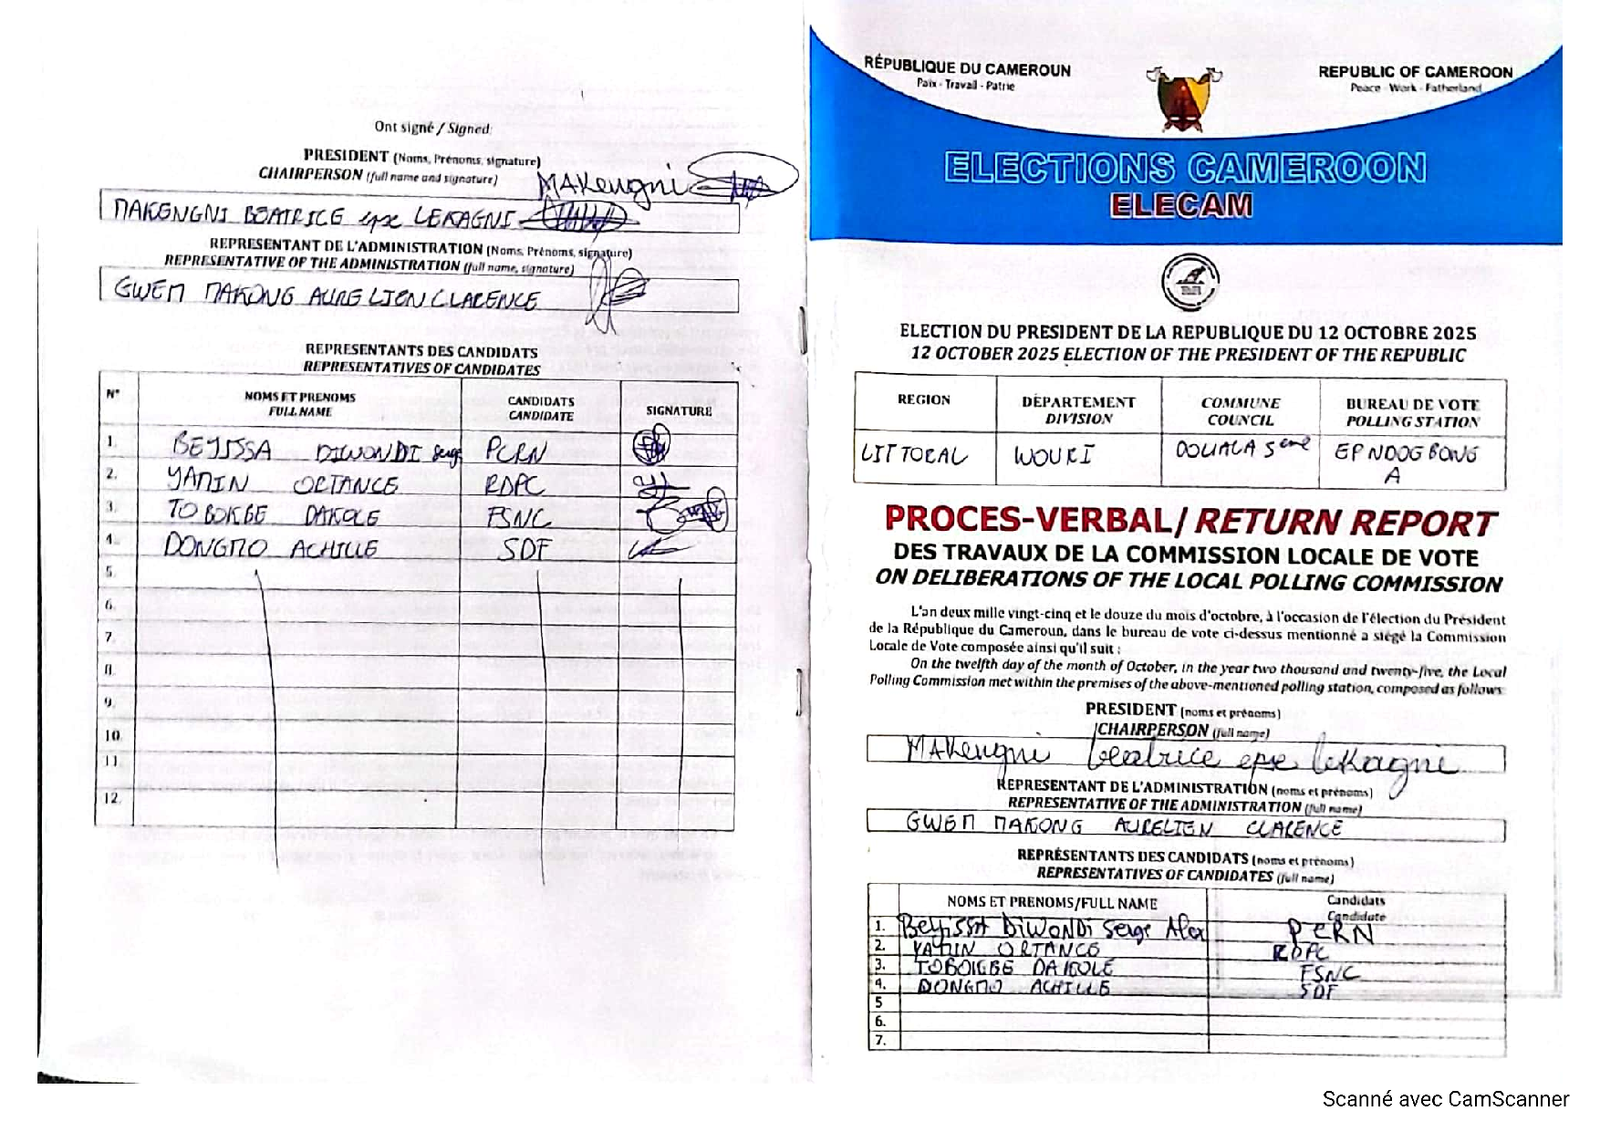 Ont signé / Signed:
PRESIDENT (Noms, Prénoms, signature)
CHAIRPERSON (full name and signature)
MAKengni
MAKENGNI BEATRICE epse LEKAGNI
REPRESENTANT DE L'ADMINISTRATION (Noms, Prénoms, signature)
REPRESENTATIVE OF THE ADMINISTRATION (full name, signature)
GWEM MAKONG AURELIEN CLARENCE
REPRESENTANTS DES CANDIDATS
REPRESENTATIVES OF CANDIDATES
N° NOMS ET PRENOMS FULL NAME CANDIDATS CANDIDATE SIGNATURE
1. BEYISSA DIWONDI Serge PCRN
2. YAMIN ORTANCE RDPC
3. TOBOKBE DAKOLE FSNC
4. DONGMO ACHILLE SDF
5.
6.
7.
8.
9.
10.
11.
12.
RÉPUBLIQUE DU CAMEROUN
Paix - Travail - Patrie
REPUBLIC OF CAMEROON
Peace - Work - Fatherland
ELECTIONS CAMEROON
ELECAM
ELECTION DU PRESIDENT DE LA REPUBLIQUE DU 12 OCTOBRE 2025
12 OCTOBER 2025 ELECTION OF THE PRESIDENT OF THE REPUBLIC
REGION DÉPARTEMENT DIVISION COMMUNE COUNCIL BUREAU DE VOTE POLLING STATION
LITTORAL WOURI DOUALA 5eme EP NDOGBONG A
PROCES-VERBAL/ RETURN REPORT
DES TRAVAUX DE LA COMMISSION LOCALE DE VOTE
ON DELIBERATIONS OF THE LOCAL POLLING COMMISSION
L'an deux mille vingt-cinq et le douze du mois d'octobre, à l'occasion de l'élection du Président
de la République du Cameroun, dans le bureau de vote ci-dessus mentionné a siégé la Commission
Locale de Vote composée ainsi qu'il suit :
On the twelfth day of the month of October, in the year two thousand and twenty-five, the Local
Polling Commission met within the premises of the above-mentioned polling station, composed as follows:
PRESIDENT (noms et prénoms)
/CHAIRPERSON (full name)
MAKengni beatrice epse leKagni
REPRESENTANT DE L'ADMINISTRATION (noms et prénoms)
REPRESENTATIVE OF THE ADMINISTRATION (full name)
GWEM MAKONG AURELIEN CLARENCE
REPRÉSENTANTS DES CANDIDATS (noms et prénoms)
REPRESENTATIVES OF CANDIDATES (full name)
NOMS ET PRENOMS/FULL NAME Candidats Candidate
1. BeYiSSA DiWONDi Serge Alex PCRN
2. YAMIN ORTANCE RDPC
3. TOBOIGBE DAKOLE FSNC
4. DONGMO ACHILLE SDF
5
6.
7.
Scanné avec CamScanner